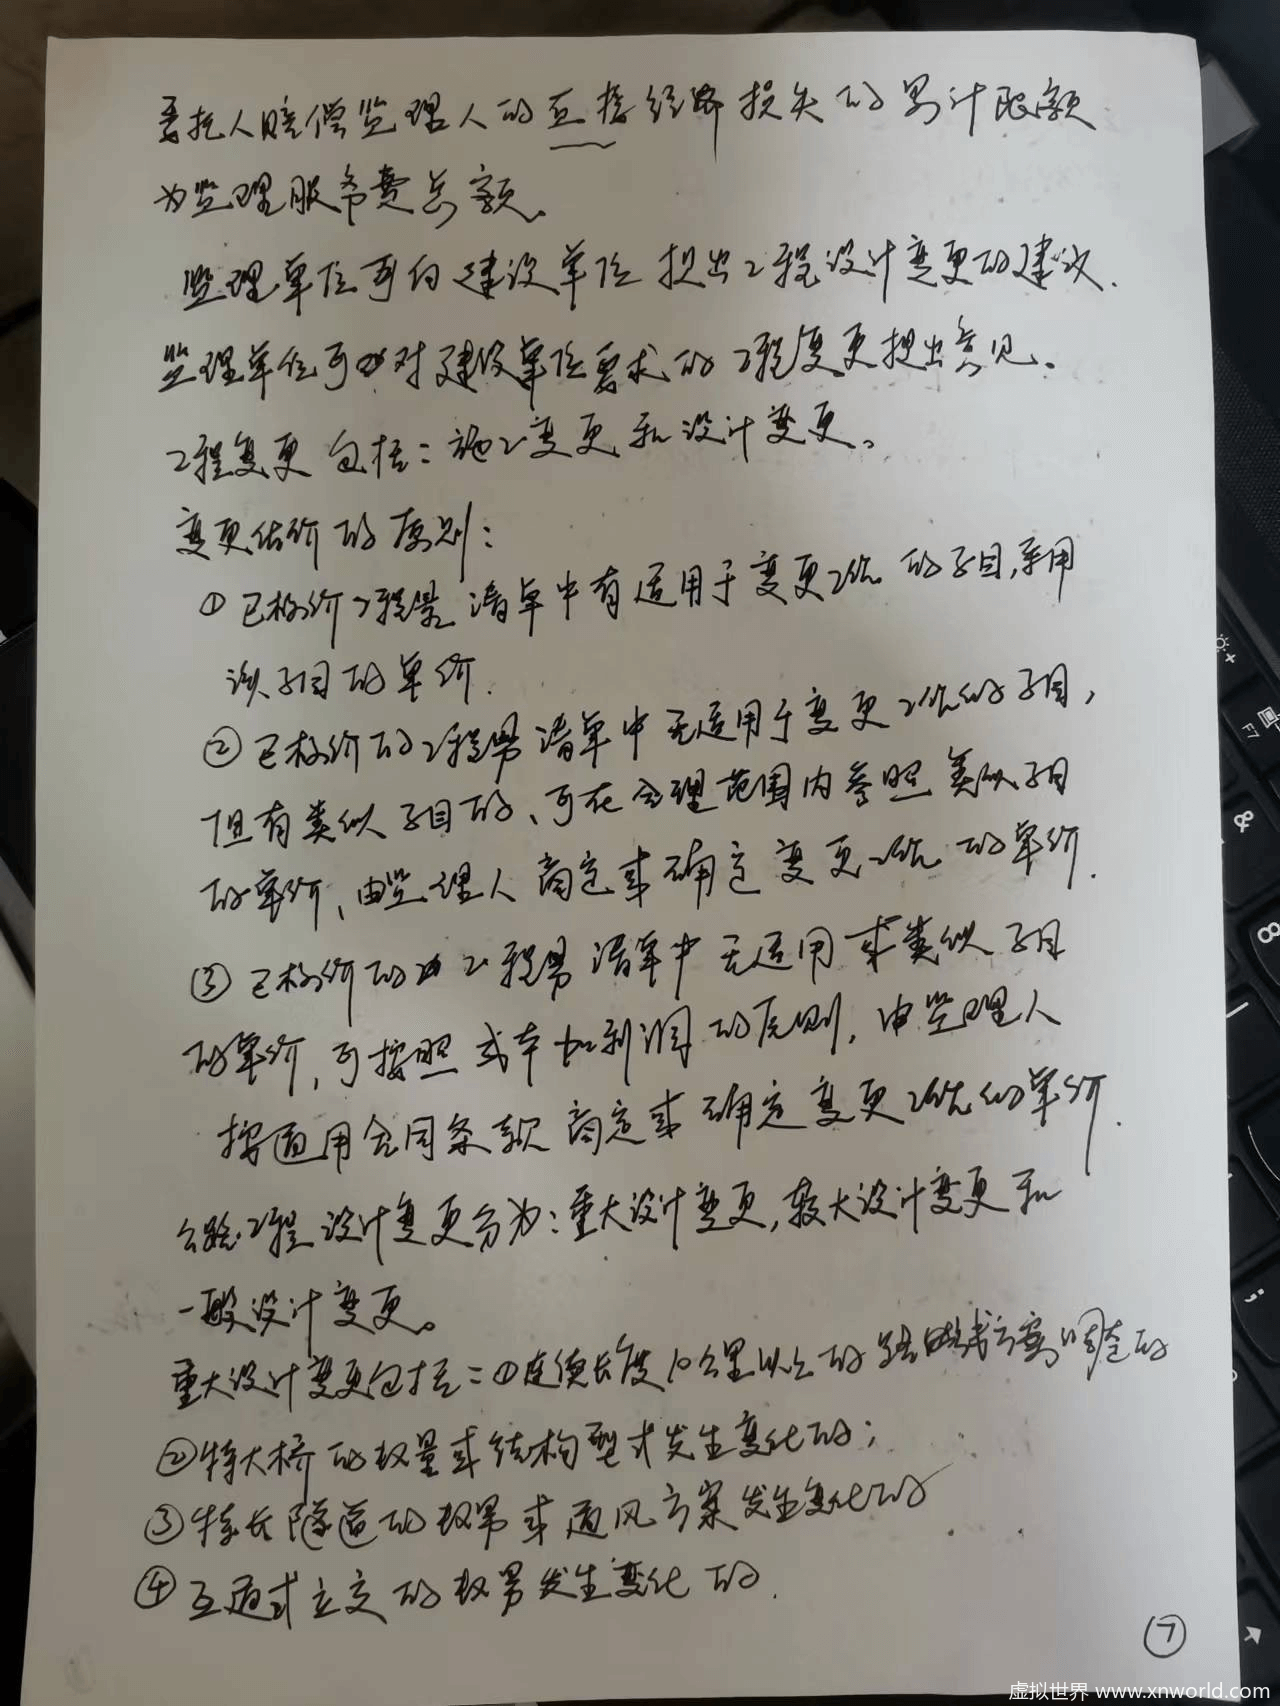 委托人赔偿监理人的直接经济损失的累计限额
为监理服务费总额、
监理单位可向建设单位提出工程设计变更的建议.
监理单位可对建设单位要求的工程变更提出意见。
工程变更包括：施工变更和设计变更。
变更估价的原则：
①已标价工程量清单中有适用于变更工作的子目,采用
该子目的单价.
②已标价的工程量清单中无适用于变更工作的子目，
但有类似子目的、可在合理范围内参照类似子目
的单价、由监理人商定或确定变更工作的单价.
③已标价的工程量清单中无适用或类似子目
的单价，可按照成本加利润的原则，由监理人
按通用合同条款商定或确定变更工作的单价.
公路工程设计变更分为：重大设计变更，较大设计变更和
一般设计变更。
重大设计变更包括：①连续长度10公里以上的路线方案调整的
②特大桥的数量或结构型式发生变化的；
③特长隧道的数量或通风方案发生变化的
④互通式立交的数量发生变化的.
⑦
虚拟世界 www.xnworld.com
F7
&
8
;